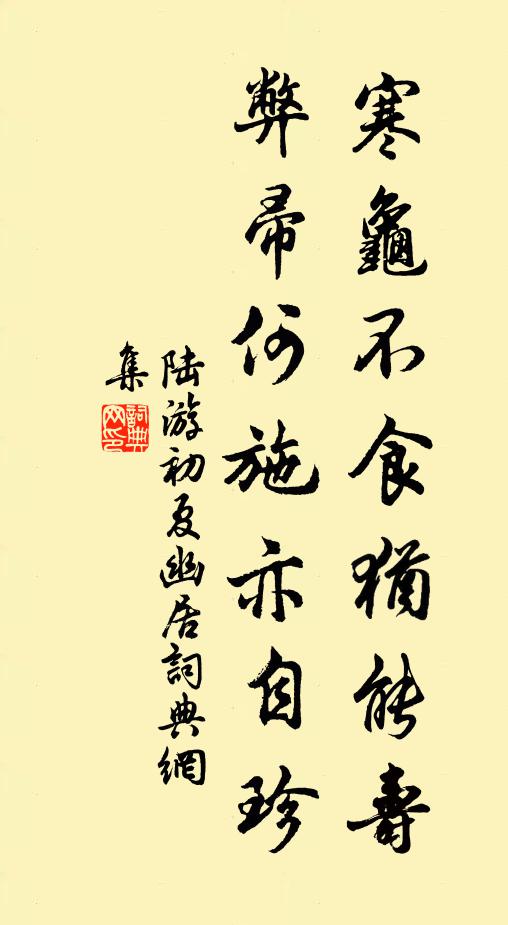 寒龜不食猶能壽
弊帚何施亦自珍
陆游初夏幽居詞典網
集
詞典网印